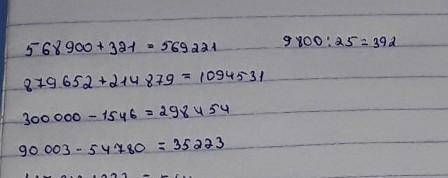 568900+321 = 569221
9800:25=392
879652+214879 = 1094531
300000-1546 = 298454
90003-54780 = 35223